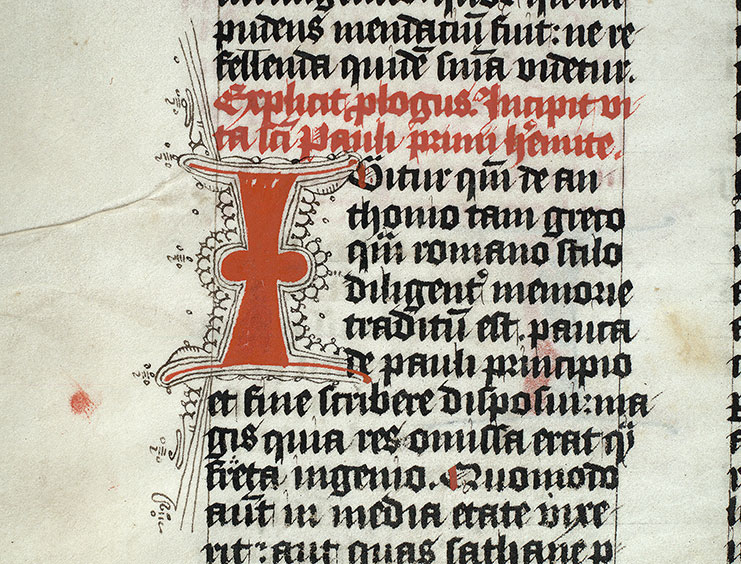 pudens mendatiū fuit: ne re
fellenda quidē sn̄ia videtur.
Explicit ꝓlogus. Incipit vi
ta sc̄i Pauli primi h̓emite.
IGitur qm̄ de an
thonio tam greco
qm̄ romano stilo
diligent᷒ memorie
traditū est. pauca
de pauli principio
et fine scribere disposui: ma
gis quia res omissa erat qm̄
freta ingenio. Quomodo
aūt in media etate vixe
rit: aut quas sathane p